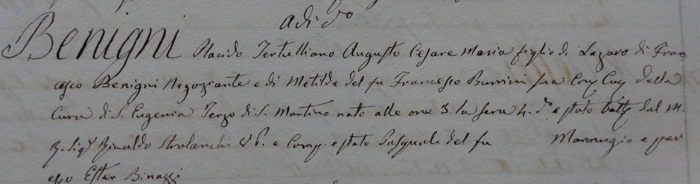 adi d.o
Benigni Placido Tertulliano Augusto Cesare Maria figlio di Lazaro di Fran
cesco Benigni Negoziante e di Metilde del fu Francesco Burrini sua Con: Cug: della
Cura di S. Eugenia Terzo di S. Martino nato alle ore 3. la sera 4. d.o e stato batt: dal M.
R. Sig.r Rinaldo e Comp. e stato Pasquale del fu Marmugio e per
esso Ester Binazzi